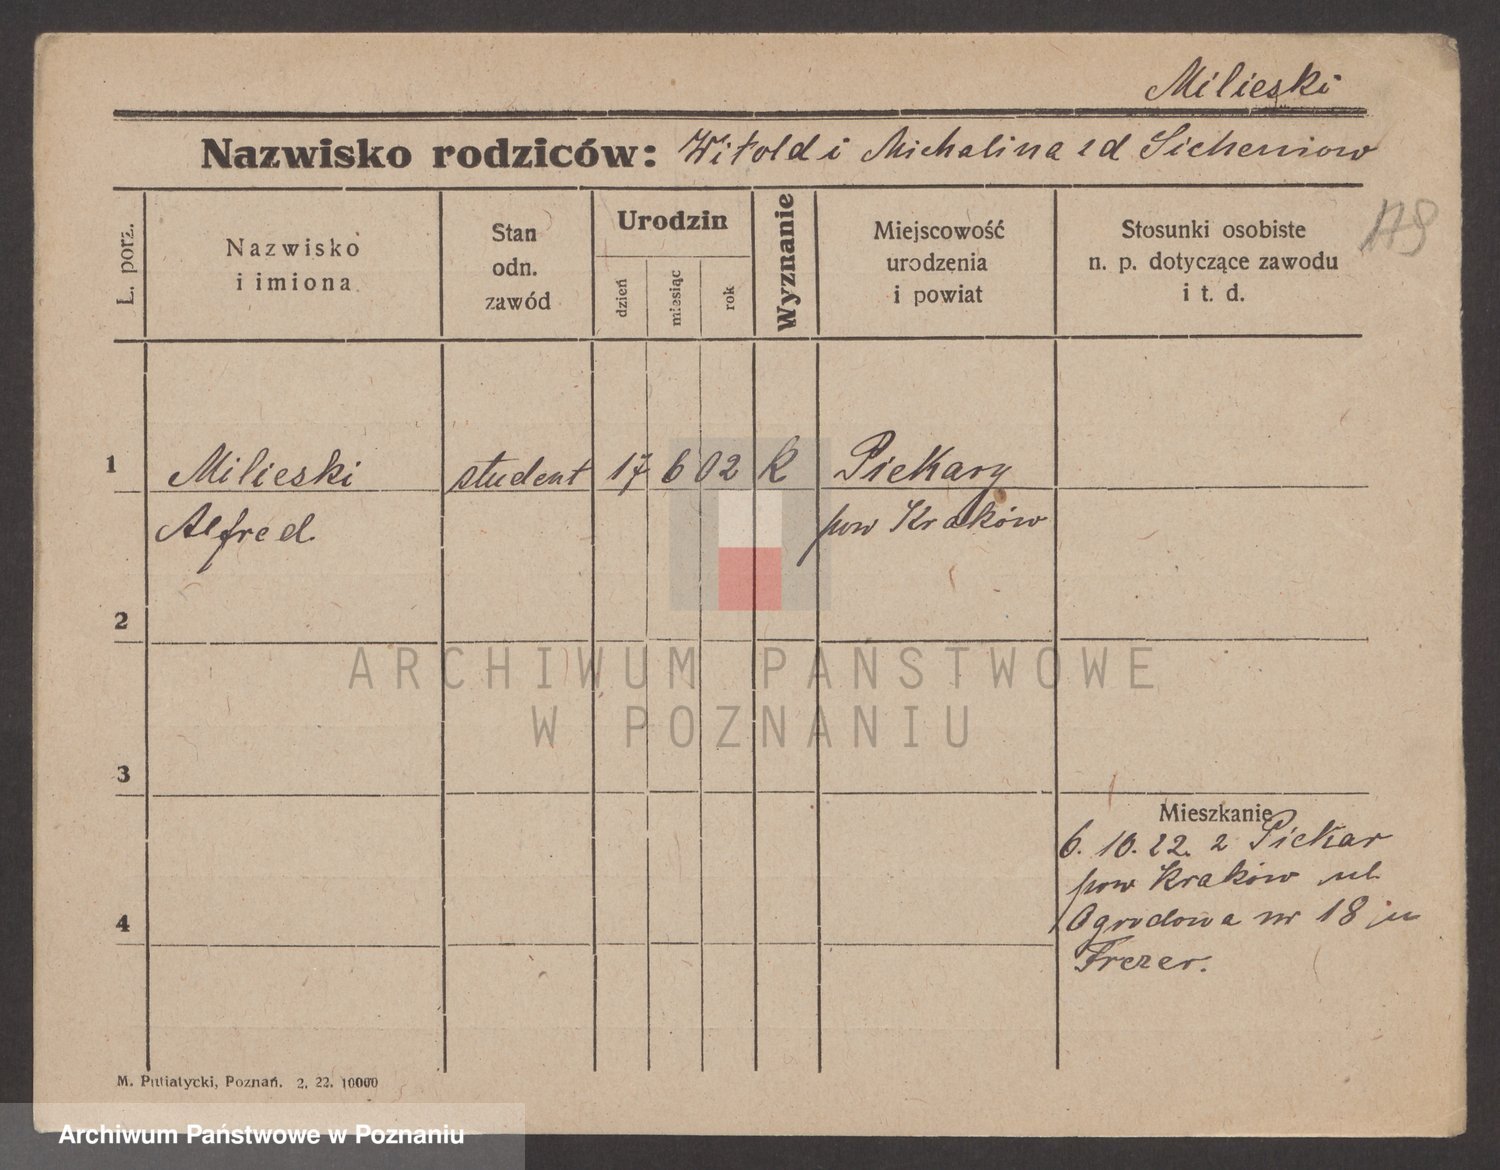 Milieski
Nazwisko rodziców: Witold i Michalina zd Sicheniow
L. porz.
Nazwisko
i imiona
Stan
odn.
zawód
Urodzin
dzień
miesiąc
rok
Wyznanie
Miejscowość
urodzenia
i powiat
Stosunki osobiste
n. p. dotyczące zawodu
i t. d.
1 Milieski student 17 6 02 k Piekary
Alfred pow Kraków
2
3
4
Mieszkanie
6. 10. 22. z Piekar
pow Kraków ul.
Ogrodowa nr 18 ju
Frezer.
M. Putiatycki, Poznań. 2. 22. 10000
ARCHIWUM PAŃSTWOWE
W POZNANIU
Archiwum Państwowe w Poznaniu